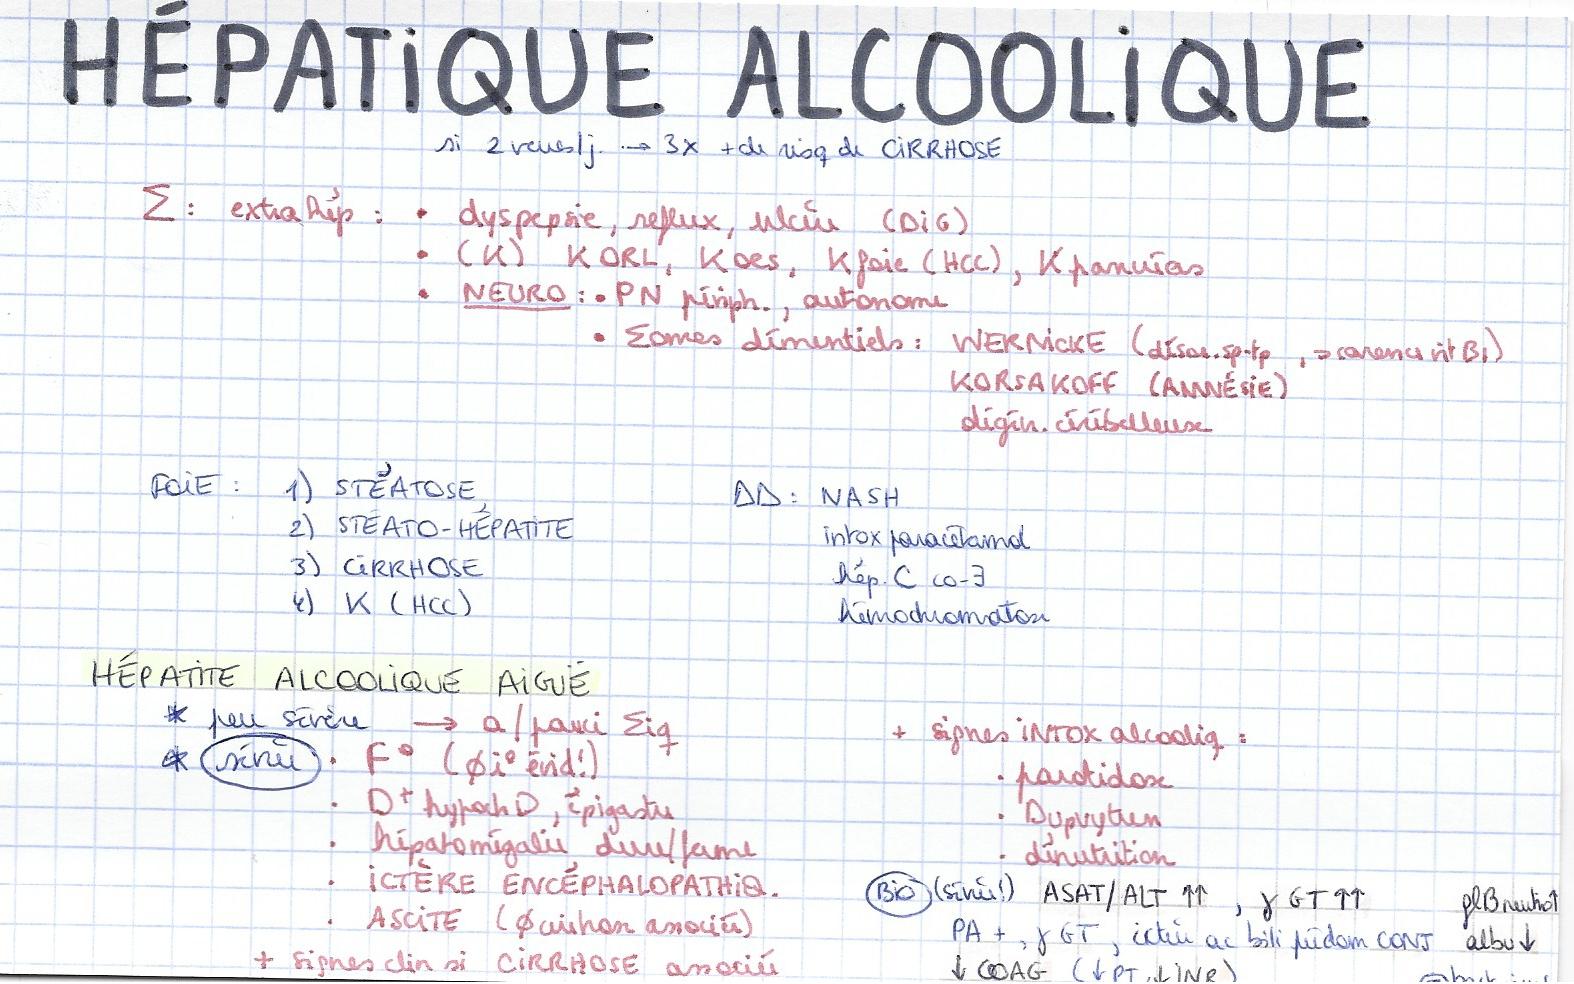 HÉPATiQUE ALCOOLiQUE
si 2 verres/j. → 3x + de risq de CiRRHOSE
Σ : extra hép : • dyspepsie, reflux, ulcère (DiG)
• (K) K ORL, K oes, K foie (HCC), K pancréas
• NEURO : • PN périph., autonome
• Σomes démentiels : WERNiCKE (désor. sp-tp, → carence vit B1)
KORSAKOFF (AMNÉSiE)
dégén. cérébelleuse
FOiE : 1) STÉATOSE
2) STÉATO-HÉPATiTE
3) CiRRHOSE
4) K (HCC)
ΔΔ : NASH
intox paracétamol
hép. C co-∃
hémochromatose
HÉPATiTE ALCOOLiQUE AiGUË
* peu sévère → a/pauci Σiq
* sévère • F° (∅ i° évid!)
• D+ hypoch D, épigastre
• hépatomégalie dure/ferme
• iCTÈRE ENCÉPHALOPATHiQ.
• ASCiTE (∅ cirrhose associée)
+ signes clin si CiRRHOSE associée
+ signes iNTOX alcooliq :
• parotidose
• Dupuytren
• dénutrition
Bio (sévère!) ASAT/ALT ↑↑, γGT ↑↑ glB neutro↑
PA +, γGT, ictère ac bili prédom CONJ albu↓
↓ COAG (↓PT, ↓iNR)